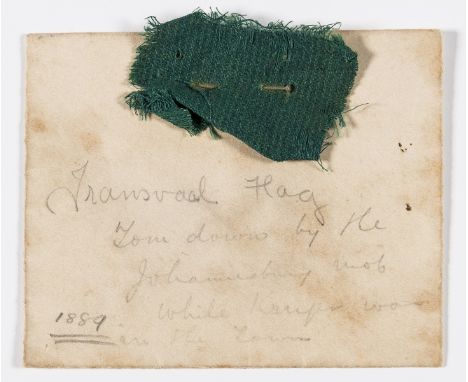 Transvaal Flag
Torn down by the
Johannesburg mob
while Kruger was
1889 in the Town